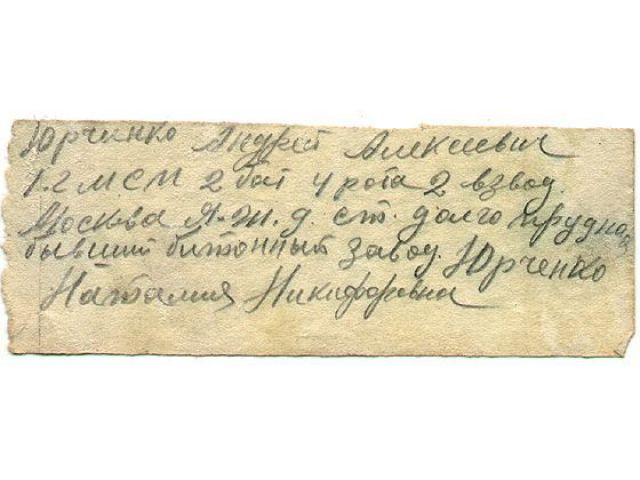 Юрчинко Андрей Алексеевич
1.2 М С М 2 бат 4 рота 2 взвод.
Москва Я.ж.д. ст. долго прудная
бывший битонный завод. Юрченко
Наталия Никифоровна